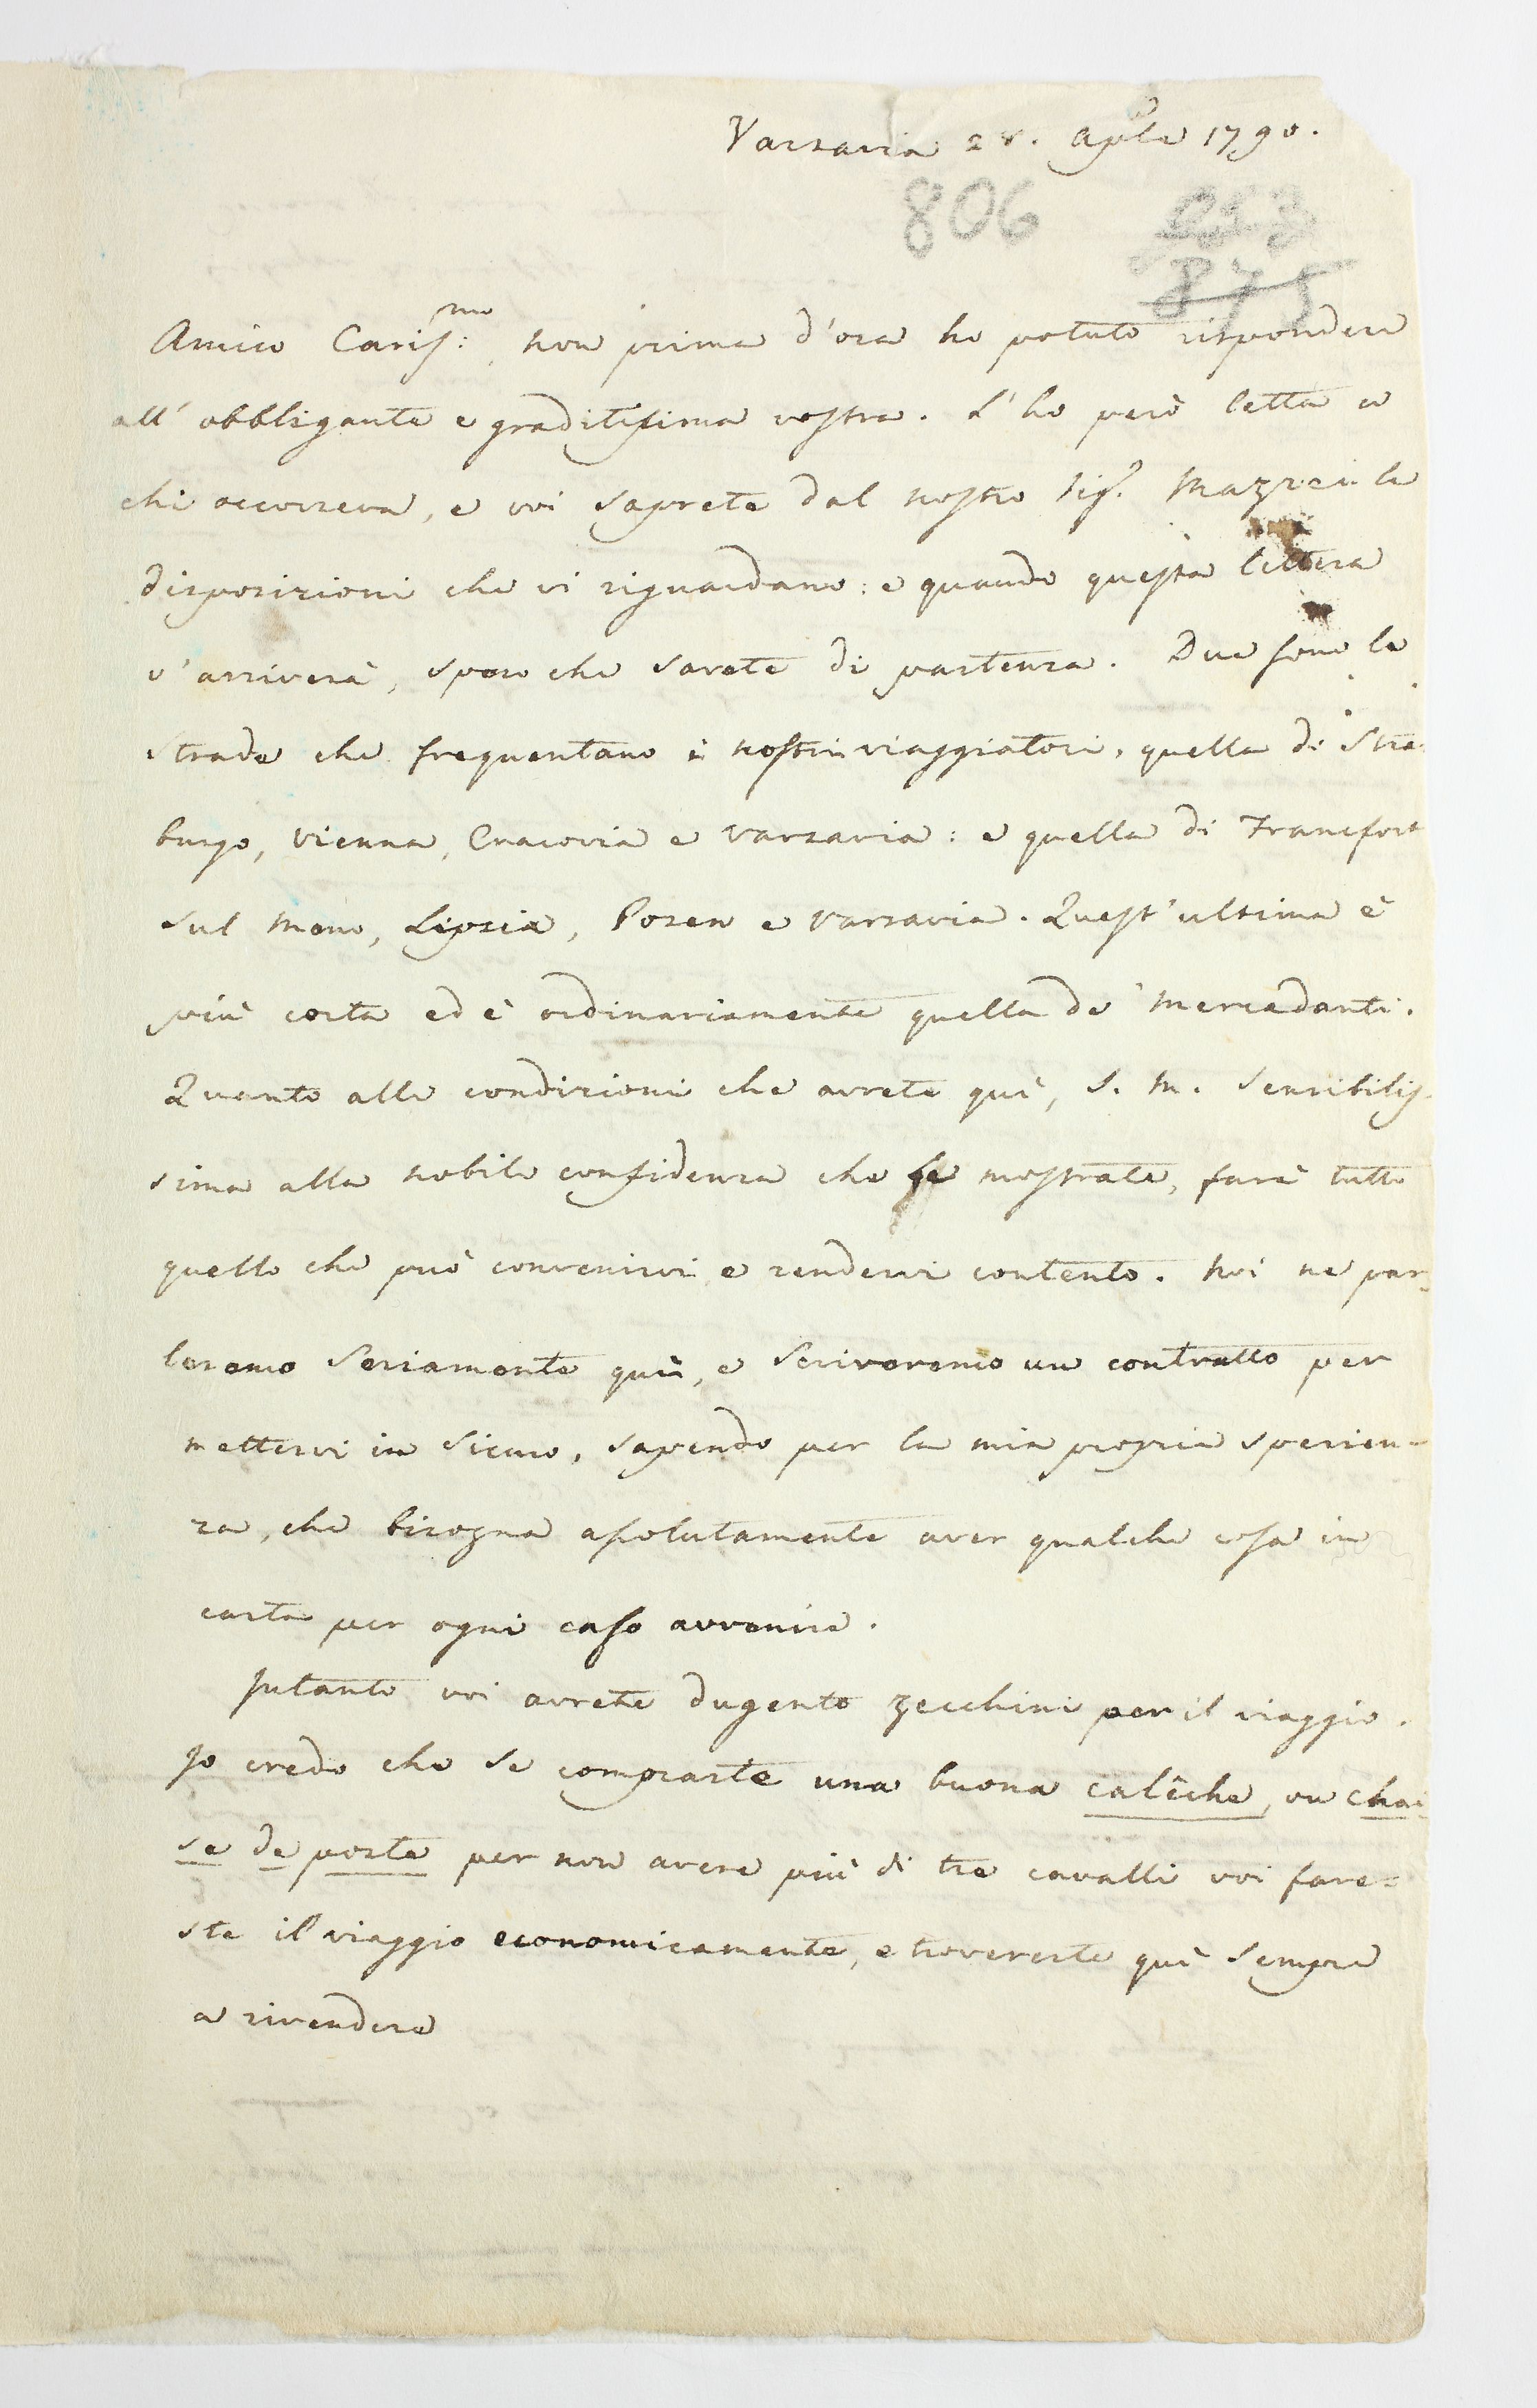 Varsavia 28. Aple 1790.
806
875
Amico Carismo: non prima d'ora ho potuto rispondere
all' obbligante e graditissima vostra. L'ho però letta a
chi occorreva, e voi saprete dal nostro Sigr. Mazzei le
disposizioni che vi riguardano: e quando questa lettera
v'arriverà, spero che sarete di partenza. Due sono le
strade che frequentano i nostri viaggiatori, quella di Stra-
burgo, Vienna, Cracovia e Varsavia: e quella di Francfort
sul Meno, Lipsia, Posen e Varsavia. Quest'ultima è
più corta ed è ordinariamente quella de' Mercadanti.
Quanto alle condizioni che avrete quì, S. M. sensibilis-
sima alla nobile confidenza che le mostrate, farà tutto
quello che può convenirvi e rendervi contento. Noi ne par-
leremo seriamente quì, e scriveremo un contratto per
mettervi in sicuro, sapendo per la mia propria sperien-
za, che bisogna assolutamente aver qualche cosa in
carta per ogni caso avvenire.
Intanto voi avrete dugento zecchini per il viaggio.
Io credo che se compraste una buona calêche, ou chai
se de poste per non avere più di tre cavalli voi fare-
ste il viaggio economicamente, e trovereste quì sempre
a rivendere